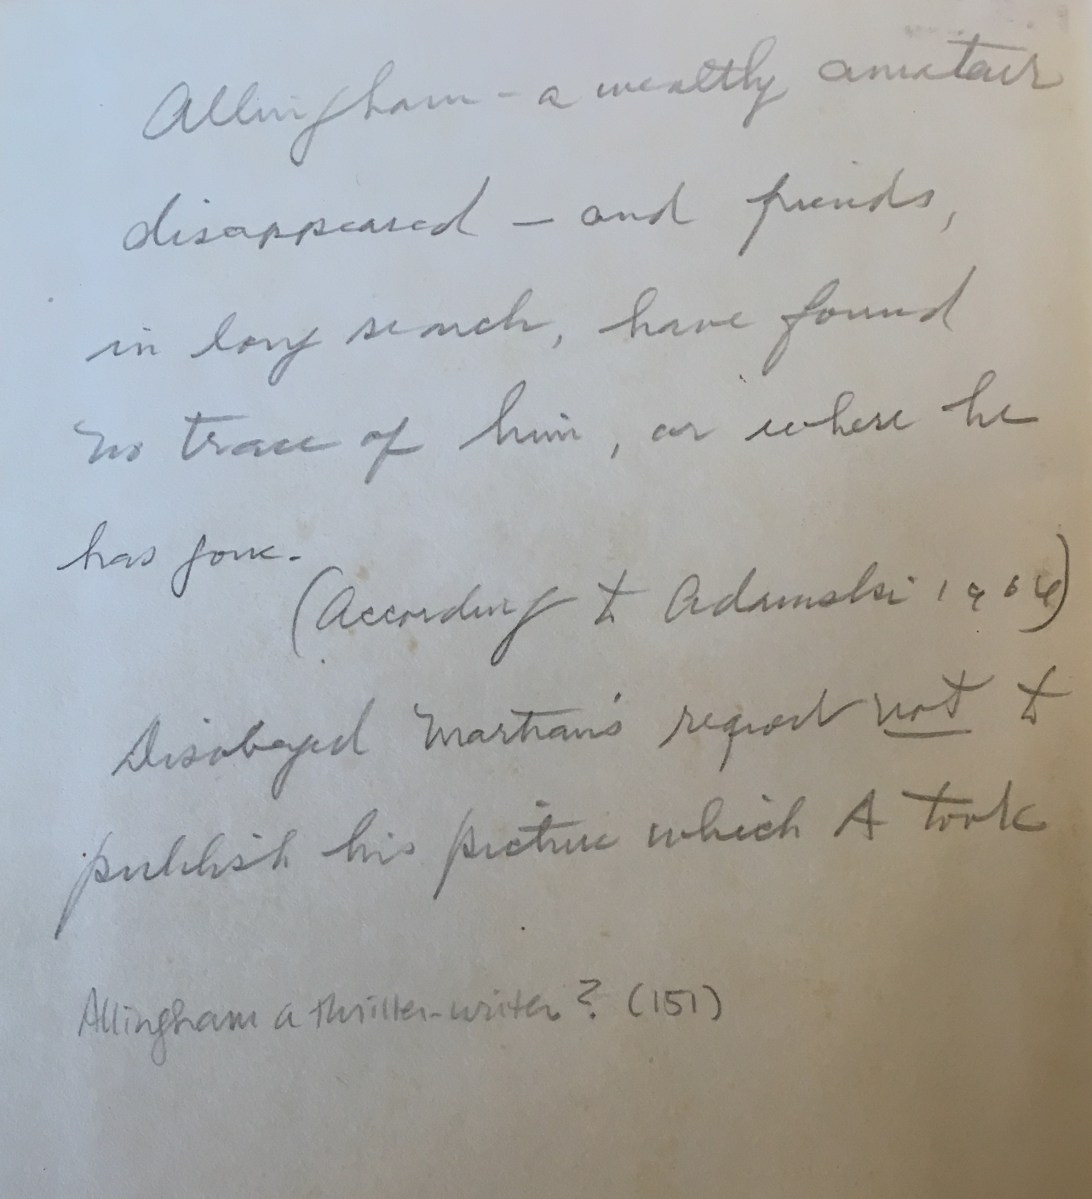 Allingham – a wealthy amateur
disappeared – and friends,
in long search, have found
no trace of him, or where he
has gone.
(According to Adamski 1964)
Disobeyed Martian's request not to
publish his picture which A took
Allingham a thriller-writer? (151)